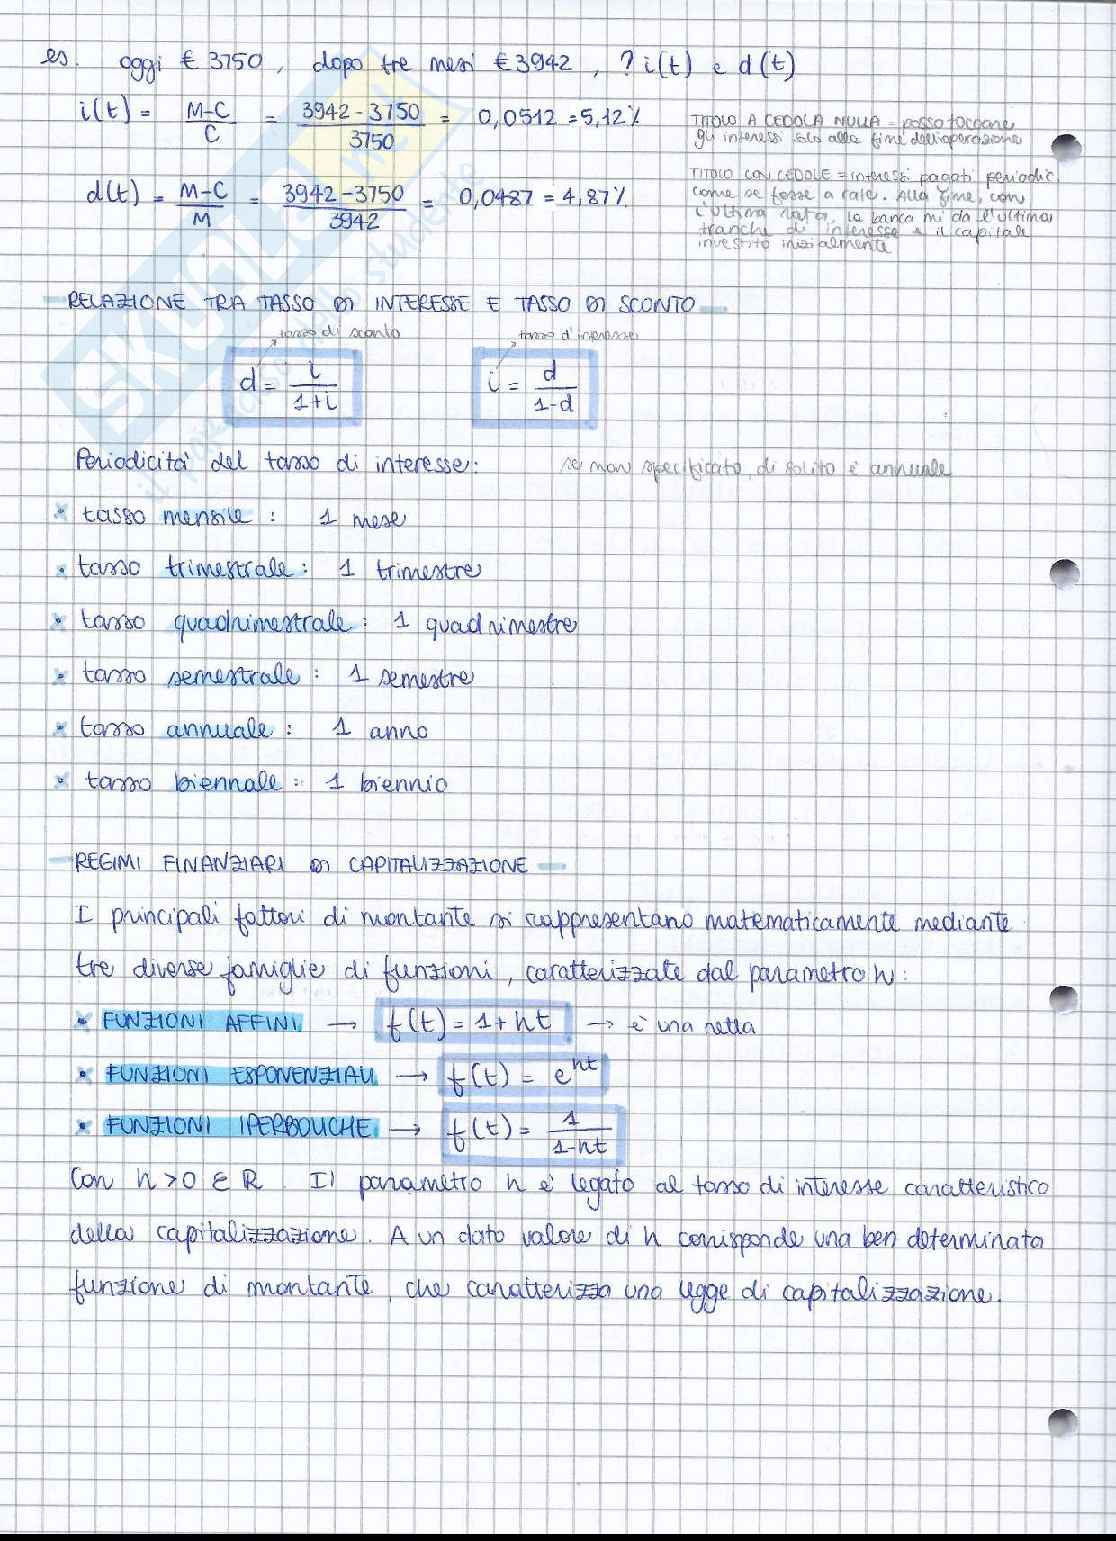 es. oggi € 3750, dopo tre mesi € 3942, ? i(t) e d(t)
i(t) = M-C / C = 3942 - 3750 / 3750 = 0,0512 = 5,12%
d(t) = M-C / M = 3942 - 3750 / 3942 = 0,0487 = 4,87%
TITOLO A CEDOLA NULLA = posso toccare
gli interessi solo alla fine dell'operazione
TITOLO CON CEDOLE = interessi pagati periodic.
come se fosse a rate. Alla fine, con
l'ultima data, la banca mi da l'ultima
tranche di interesse e il capitale
investito inizialmente
RELAZIONE TRA TASSO DI INTERESSE E TASSO DI SCONTO
tasso di sconto
tasso d'interesse
d = i / 1+i
i = d / 1-d
Periodicità del tasso di interesse: se non specificato, di solito è annuale
× tasso mensile : 1 mese
× tasso trimestrale : 1 trimestre
× tasso quadrimestrale : 1 quadrimestre
× tasso semestrale : 1 semestre
× tasso annuale : 1 anno
× tasso biennale : 1 biennio
REGIMI FINANZIARI DI CAPITALIZZAZIONE
I principali fattori di montante si rappresentano matematicamente mediante
tre diverse famiglie di funzioni, caratterizzate dal parametro h:
× FUNZIONI AFFINI → f(t) = 1 + ht → è una retta
× FUNZIONI ESPONENZIALI → f(t) = e^ht
× FUNZIONI IPERBOLICHE → f(t) = 1 / 1-ht
Con h > 0 ∈ R. Il parametro h è legato al tasso di interesse caratteristico
della capitalizzazione. A un dato valore di h corrisponde una ben determinata
funzione di montante, che caratterizza una legge di capitalizzazione.